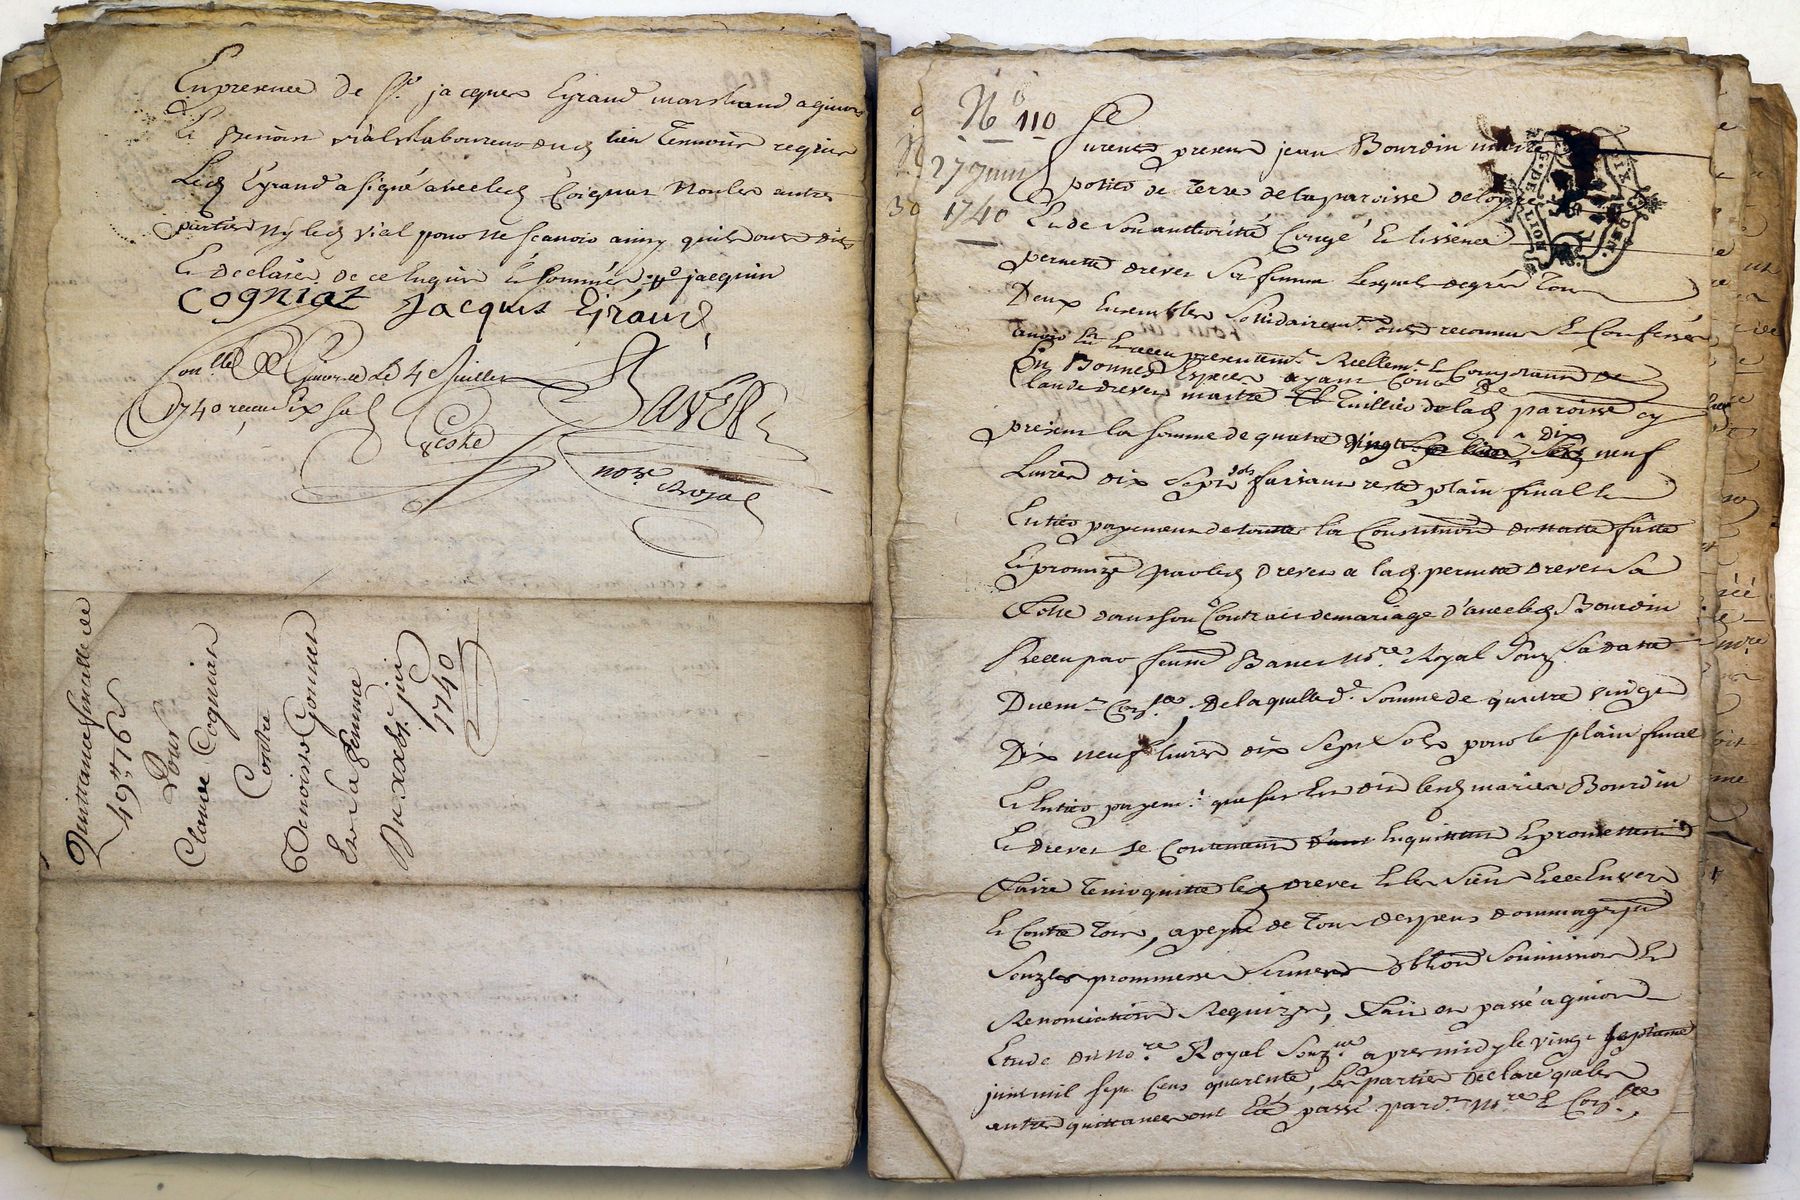 En presence de Sr. jacques Eyraud marchand a givors
Et Benoist vial laboureur dud lieu Temoins requis
Led Eyraud a signé avec led Coignat Non les autres
parties Ny led vial pour ne scavoir ainsy quils ont dit
Et declaré de ce Enquis Et sommés
Cogniat Jacques Eÿraud
Conllé a Givors Le 4e Juillet
1740 receu six sols
Bavet
nore Royal
Quittance finalle de
49
Pour
Claude Cogniat
Contre
Benoist Gonnet
Et sa femme
Du xxe juin
1740
No 110
27 Juin
1740
Furent present jean Bourdin
potier de terre de la paroisse de
Et de son authorité Congé Et licence
pernette drevet sa femme Lesquels de gré Tous
Deux Ensembles solidairemt. ont reconnu Et Confessé
avoir Eu Et receu presentemt. Reellemt. Et Comptant de
En Bonnes Especes ayant Cours De
Claude drevet maitre Tuillier de lad paroisse cy
present la somme de quatre vingt dix neuf
Livres dix sept sols faisant reste plain final Et
Entier payement de toutte la Constitution dottalle faitte
Et promize par led drevet a lad pernette drevet sa
fille dans son Contrat de mariage d'avec led Bourdin
Receu par feu Me Bavet Nore. Royal souz sa datte
Duemt. Conllé. De laquelle de. somme de quatre vingt
Dix neuf livres dix sept sols pour le plain final
Et Entier payemt. que sus Est dit lesd mariez Bourdin
Et drevet se Contentent Enquittent Et promettent
Faire Tenir quitte led drevet Et les siens Envers
Et Contre tous, a peyne de tous depens dommages
Souz les promesses serment obligon soumission Et
Renonciations Requizes, Fait et passé a givors
Etude du nore Royal souzne apres midy le vingt septieme
juin mil sept Cens quarente, Les parties declare que les
autres quittances ont Eté passé